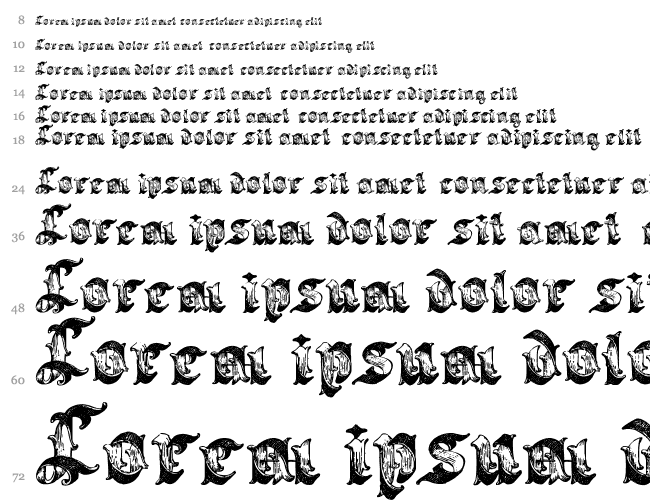 8 Lorem ipsum dolor sit amet consectetuer adipiscing elit
10 Lorem ipsum dolor sit amet consectetuer adipiscing elit
12 Lorem ipsum dolor sit amet consectetuer adipiscing elit
14 Lorem ipsum dolor sit amet consectetuer adipiscing elit
16 Lorem ipsum dolor sit amet consectetuer adipiscing elit
18 Lorem ipsum dolor sit amet consectetuer adipiscing elit
24 Lorem ipsum dolor sit amet consectetuer a
36 Lorem ipsum dolor sit amet
48 Lorem ipsum dolor si
60 Lorem ipsum dolo
72 Lorem ipsum